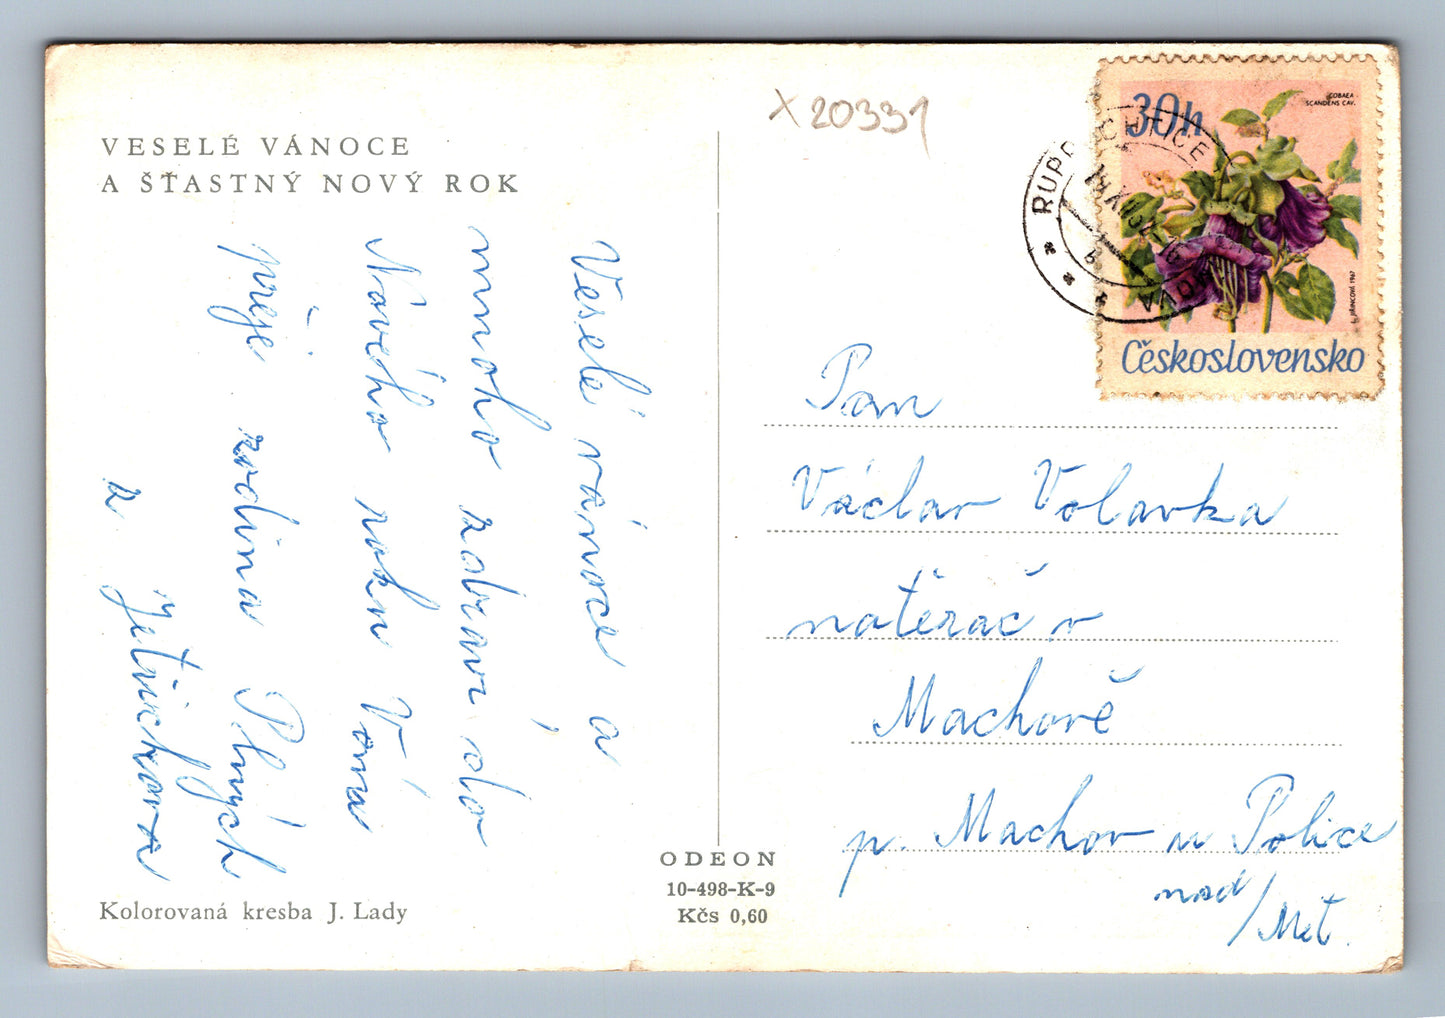 VESELÉ VÁNOCE
A ŠŤASTNÝ NOVÝ ROK
Veselé vánoce a
mnoho zdraví do
Nového roku Vám
přeje rodina Plných
z Jetřichova
Kolorovaná kresba J. Lady
ODEON
10-498-K-9
Kčs 0,60
X 20331
30h
COBAEA
SCANDENS CAV.
JIRINCOVÁ 1967
Československo
RUPRECHTICE
Pan
Václav Volavka
natěrač v
Machově
p. Machov u Police
nad/Met.